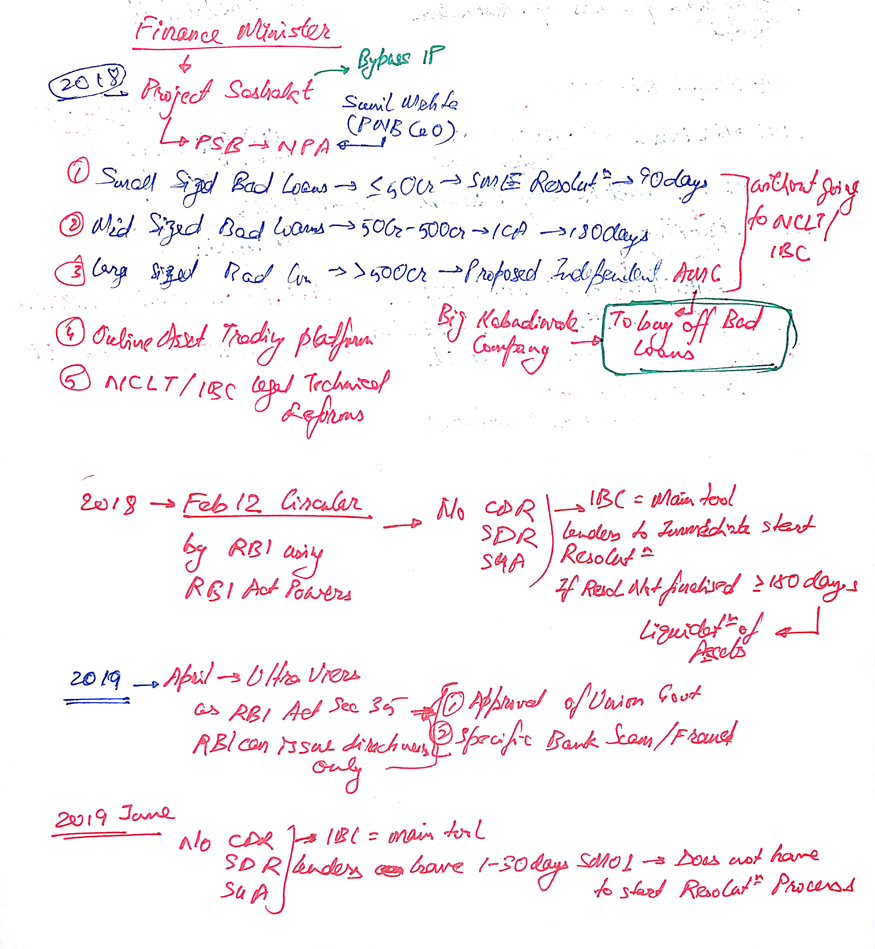 Finance Minister
2018 → Project Sashakt → Bypass IP
Sunil Mehta
(PNB CEO)
↳ PSB → NPA ←
① Small Sized Bad Loans → ≤50Cr → SME Resolutⁿ → 90 days
② Mid Sized Bad Loans → 50Cr-500cr → ICA → 180 days
③ Large Sized Bad Loan → >500cr → Proposed Independent AMC
without going
to NCLT/
IBC
④ Online Asset Trading Platform
Big Kabadiwala
Company →
To buy off Bad
Loans
⑤ NCLT/IBC Legal Technical
Reforms
2018 → Feb 12 Circular → No CDR → IBC = Main tool
by RBI using SDR Lenders to Immediate start
RBI Act Powers S4A Resolutⁿ
If Resol Not finalised ≥180 days
Liquidatⁿ of
Assets
2019 → April → Ultra Viers
as RBI Act Sec 35 → ① Approval of Union Govt
RBI can issue directives ② Specific Bank Scam/Fraud
only
2019 June
No CDR → IBC = main tool
SDR Lenders have 1-30 days SMA1 → Does not have
S4A to start Resolutⁿ Process